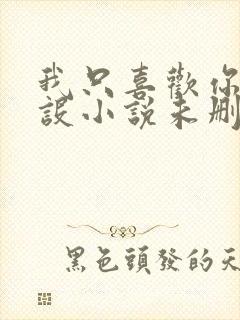 我只喜歡你
設小說未刪
黑色頭發的天